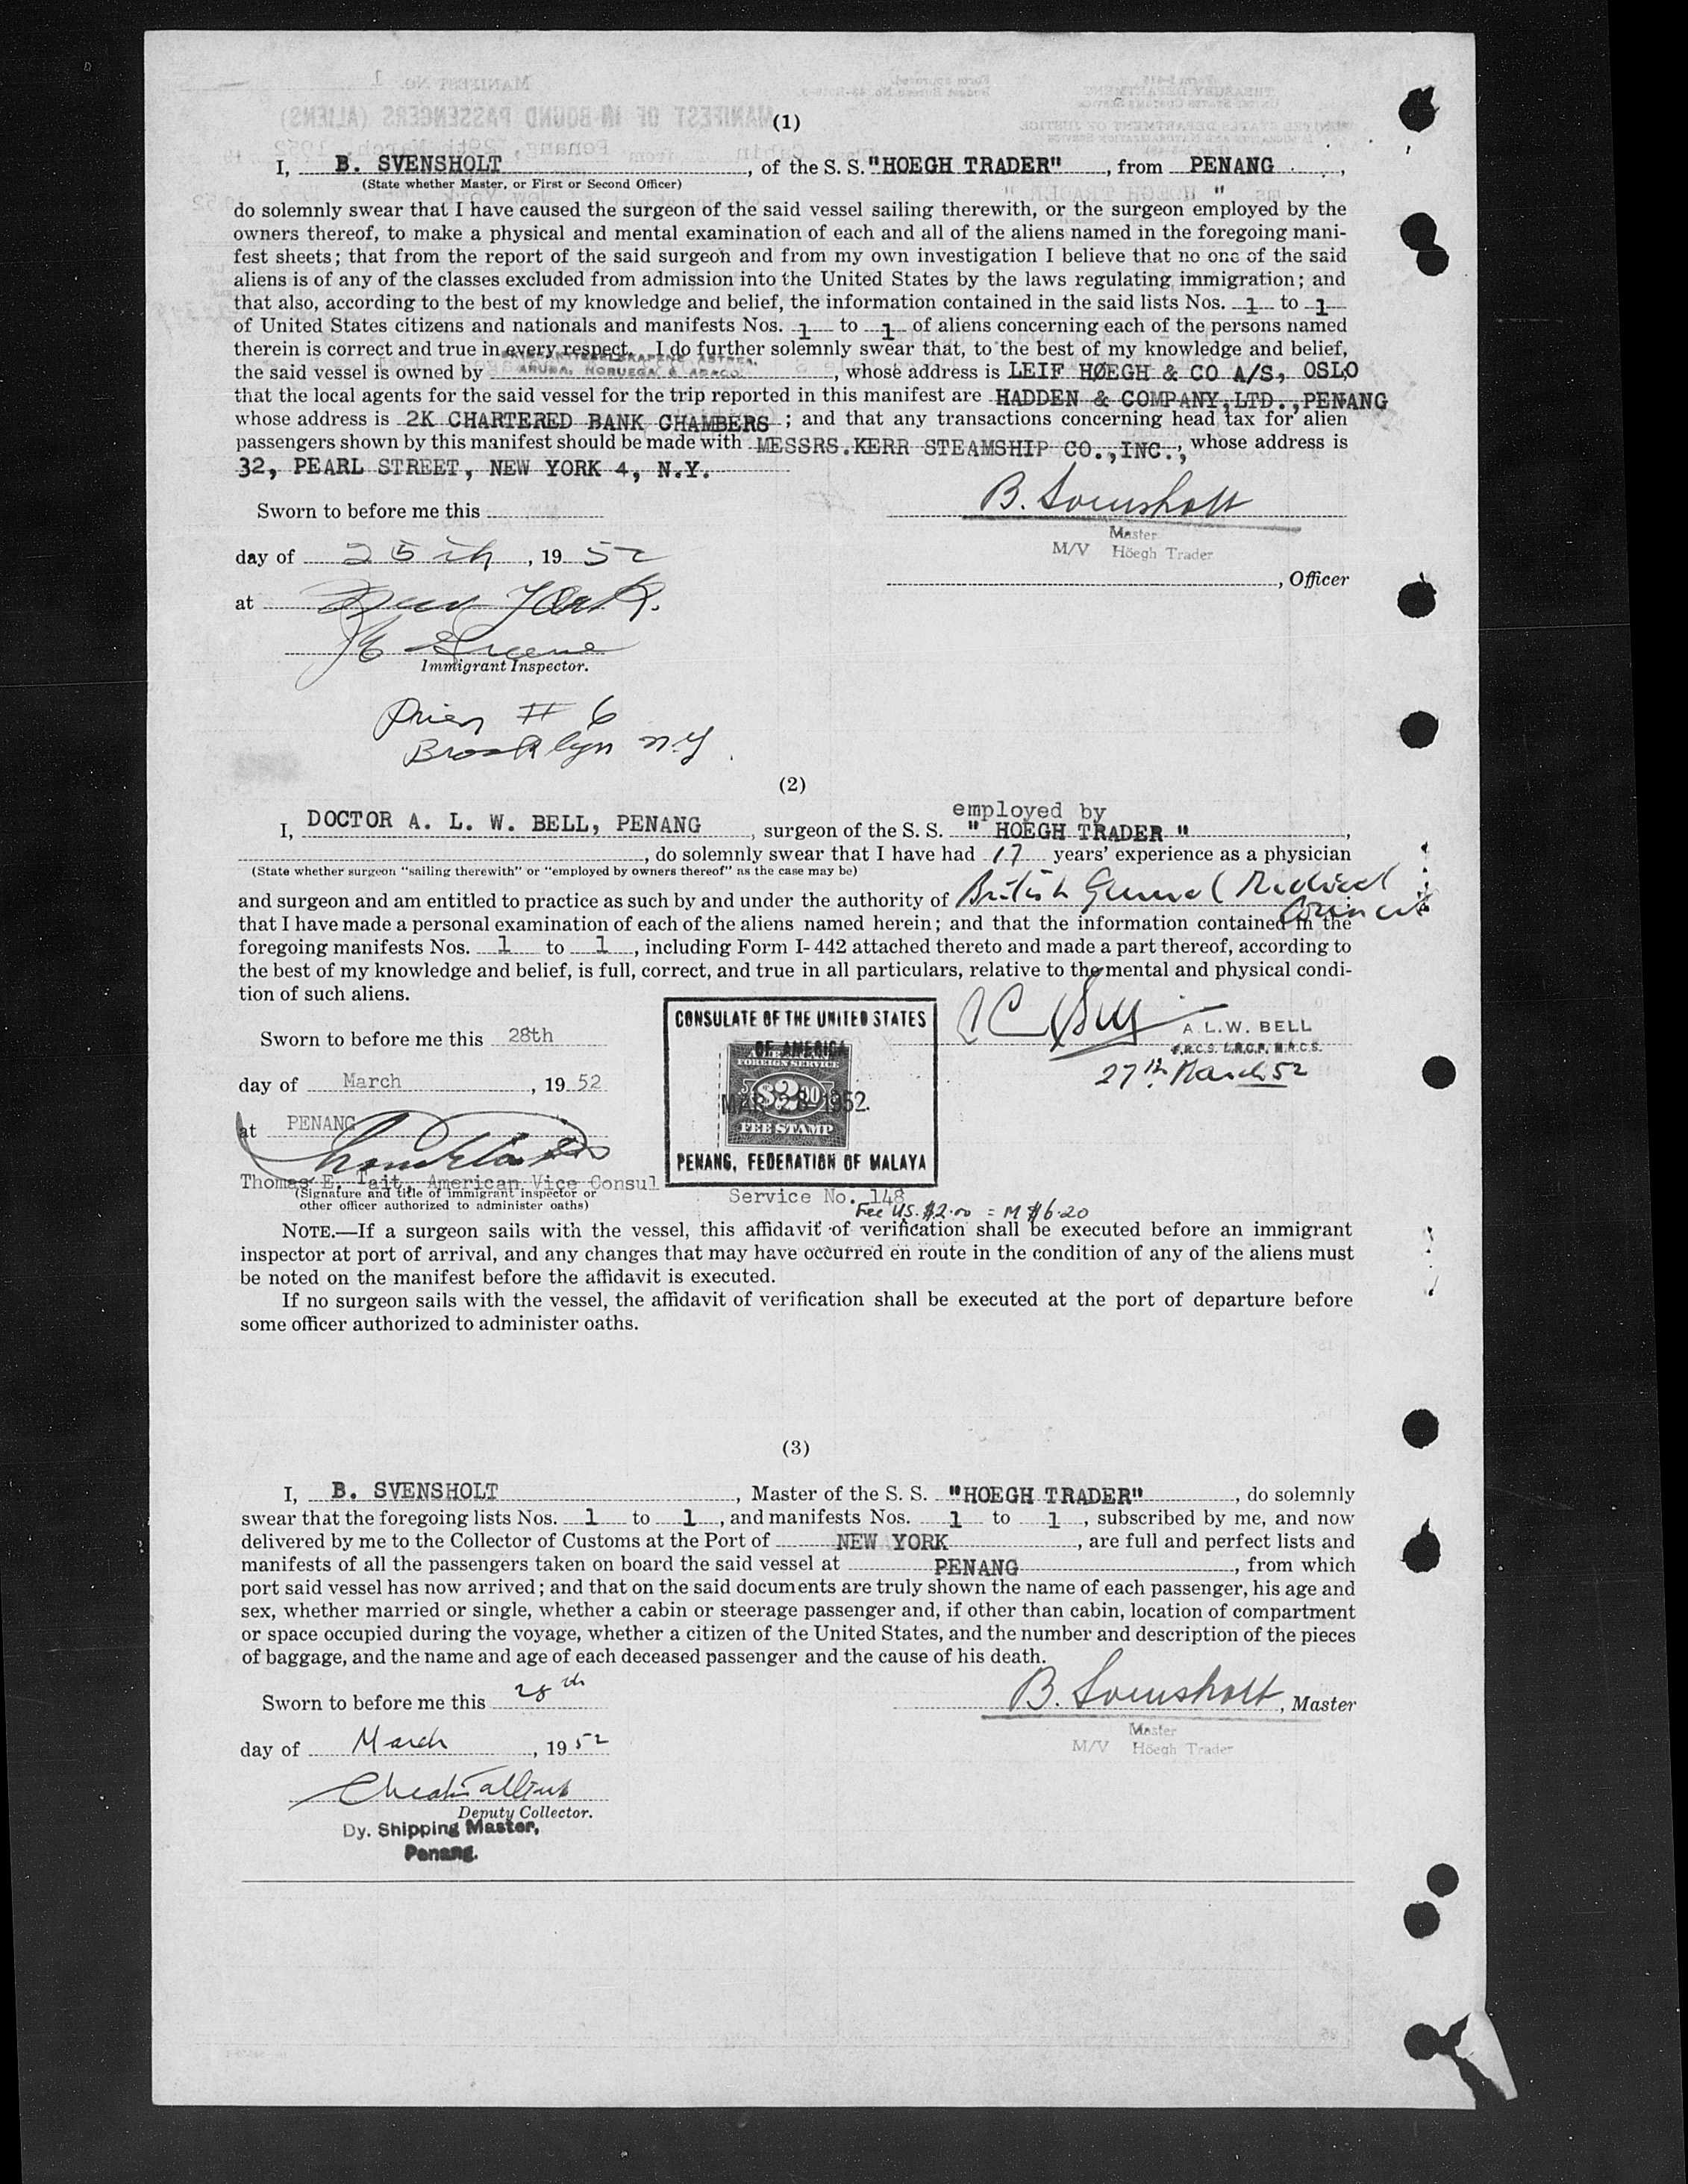 (1)
I, B. SVENSHOLT, of the S. S. "HOEGH TRADER", from PENANG,
(State whether Master, or First or Second Officer)
do solemnly swear that I have caused the surgeon of the said vessel sailing therewith, or the surgeon employed by the
owners thereof, to make a physical and mental examination of each and all of the aliens named in the foregoing mani-
fest sheets; that from the report of the said surgeon and from my own investigation I believe that no one of the said
aliens is of any of the classes excluded from admission into the United States by the laws regulating immigration; and
that also, according to the best of my knowledge and belief, the information contained in the said lists Nos. 1 to 1
of United States citizens and nationals and manifests Nos. 1 to 1 of aliens concerning each of the persons named
therein is correct and true in every respect. I do further solemnly swear that, to the best of my knowledge and belief,
the said vessel is owned by ARUBA, NORUEGA & ABACO, whose address is LEIF HØEGH & CO A/S, OSLO
that the local agents for the said vessel for the trip reported in this manifest are HADDEN & COMPANY, LTD., PENANG
whose address is 2K CHARTERED BANK CHAMBERS; and that any transactions concerning head tax for alien
passengers shown by this manifest should be made with MESSRS. KERR STEAMSHIP CO., INC., whose address is
32, PEARL STREET, NEW YORK 4, N.Y.
Sworn to before me this
B. Svensholt
Master
M/V Höegh Trader
day of 25th, 1952
, Officer
at New York.
Greene
Immigrant Inspector.
Pier # 6
Brooklyn N.Y.
(2)
employed by
I, DOCTOR A. L. W. BELL, PENANG, surgeon of the S. S. " HOEGH TRADER ",
, do solemnly swear that I have had 17 years' experience as a physician
(State whether surgeon "sailing therewith" or "employed by owners thereof" as the case may be)
and surgeon and am entitled to practice as such by and under the authority of British General Medical Council
that I have made a personal examination of each of the aliens named herein; and that the information contained in the
foregoing manifests Nos. 1 to 1, including Form I-442 attached thereto and made a part thereof, according to
the best of my knowledge and belief, is full, correct, and true in all particulars, relative to the mental and physical condi-
tion of such aliens.
CONSULATE OF THE UNITED STATES
OF AMERICA
FOREIGN SERVICE
$2.00
MAR 28 1952
FEE STAMP
PENANG, FEDERATION OF MALAYA
Bell
A.L.W. BELL
F.R.C.S. L.R.C.P. M.R.C.S.
27th March 52
Sworn to before me this 28th
day of March, 1952
at PENANG
Thomas E. Tait, American Vice Consul
(Signature and title of immigrant inspector or
other officer authorized to administer oaths)
Service No. 148
Fee US. $2.00 = M $6.20
NOTE.—If a surgeon sails with the vessel, this affidavit of verification shall be executed before an immigrant
inspector at port of arrival, and any changes that may have occurred en route in the condition of any of the aliens must
be noted on the manifest before the affidavit is executed.
If no surgeon sails with the vessel, the affidavit of verification shall be executed at the port of departure before
some officer authorized to administer oaths.
(3)
I, B. SVENSHOLT, Master of the S. S. "HOEGH TRADER", do solemnly
swear that the foregoing lists Nos. 1 to 1, and manifests Nos. 1 to 1, subscribed by me, and now
delivered by me to the Collector of Customs at the Port of NEW YORK, are full and perfect lists and
manifests of all the passengers taken on board the said vessel at PENANG, from which
port said vessel has now arrived; and that on the said documents are truly shown the name of each passenger, his age and
sex, whether married or single, whether a cabin or steerage passenger and, if other than cabin, location of compartment
or space occupied during the voyage, whether a citizen of the United States, and the number and description of the pieces
of baggage, and the name and age of each deceased passenger and the cause of his death.
Sworn to before me this 28th
B. Svensholt, Master
Master
M/V Höegh Trader
day of March, 1952
Deputy Collector.
Dy. Shipping Master,
Penang.